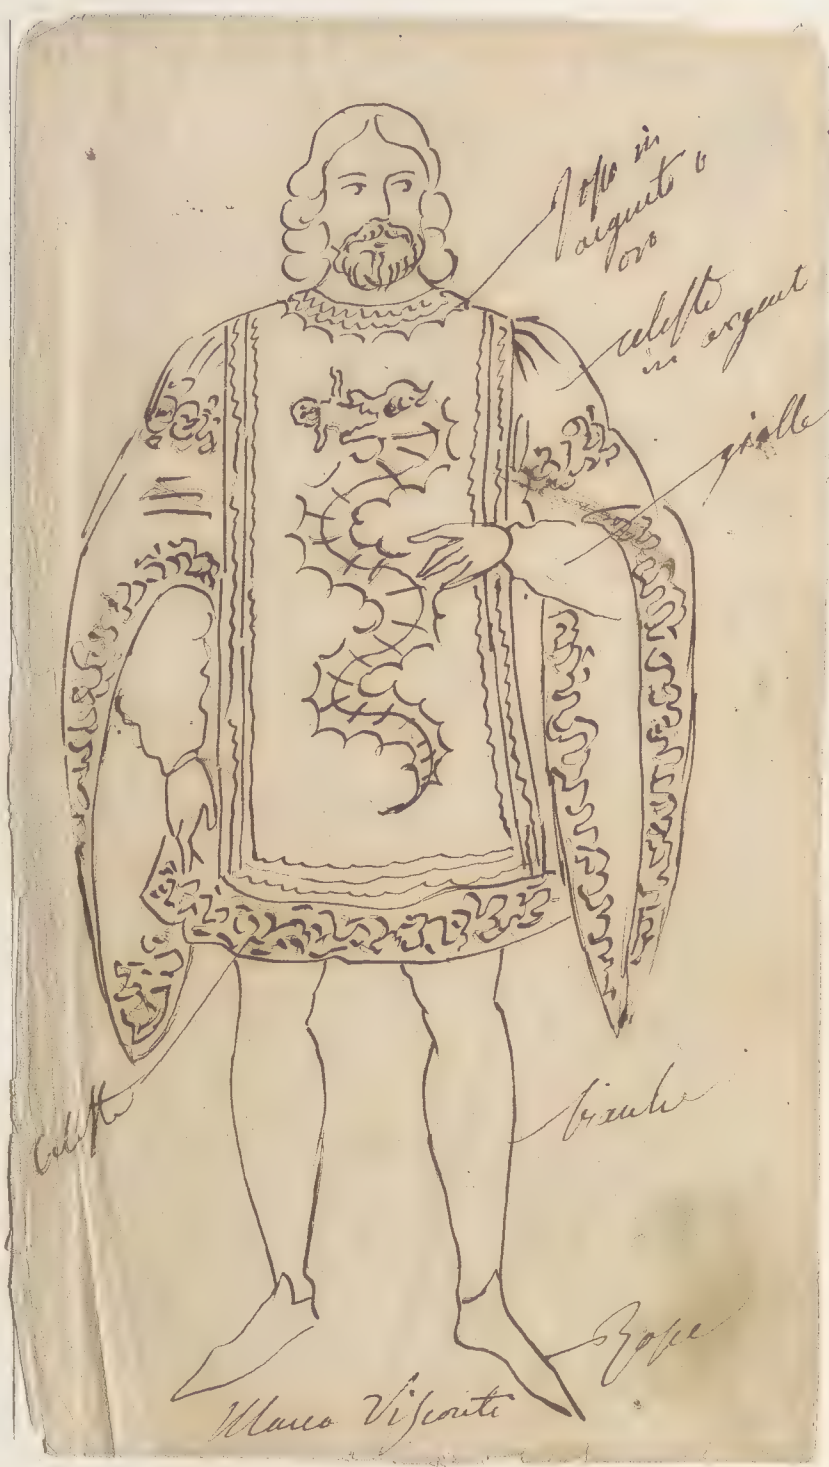 Roso in
argento o
oro
celeste
in argent
gialle
Celeste
bianche
Rosse
Marco Visconti